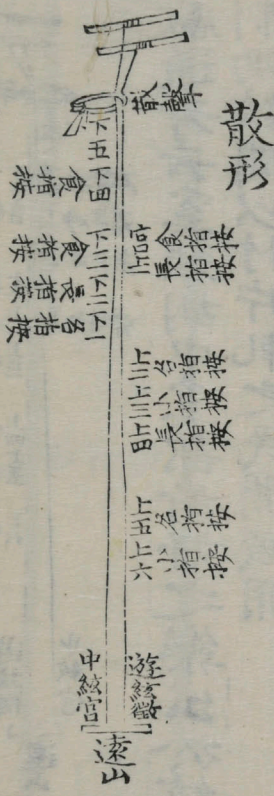 散形
散聲
下五
下四
食指按
下三
食指按
下二
長指按
下一
名指按
食指按
上一
長指按
上二
名指按
上三
小指按
上四
長指按
上五
名指按
上六
小指按
遊絃徵
中絃宮
遠山